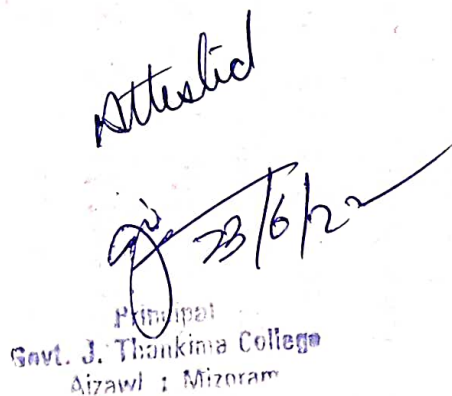 Attested
23/6/22
Principal
Govt. J. Thankima College
Aizawl : Mizoram